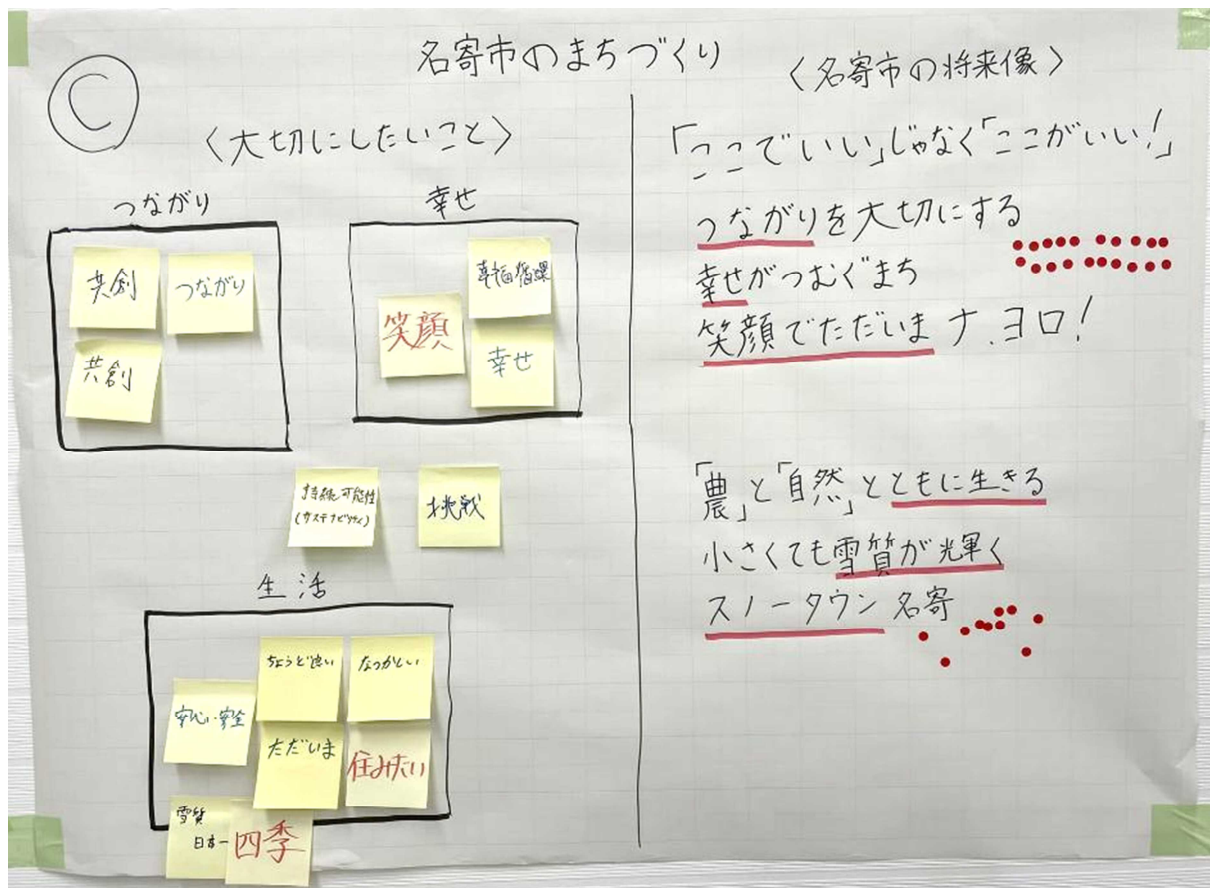 名寄市のまちづくり
C
〈大切にしたいこと〉
つながり
共創
つながり
共創
幸せ
幸福循環
笑顔
幸せ
持続可能性
(サステナビリティ)
挑戦
生活
ちょうど良い
なつかしい
安心・安全
ただいま
住みたい
雪質
日本一
四季
〈名寄市の将来像〉
「ここでいい」じゃなく「ここがいい!」
つながりを大切にする
幸せがつむぐまち
笑顔でただいまナ.ヨロ!
「農」と「自然」とともに生きる
小さくても雪質が光輝く
スノータウン名寄